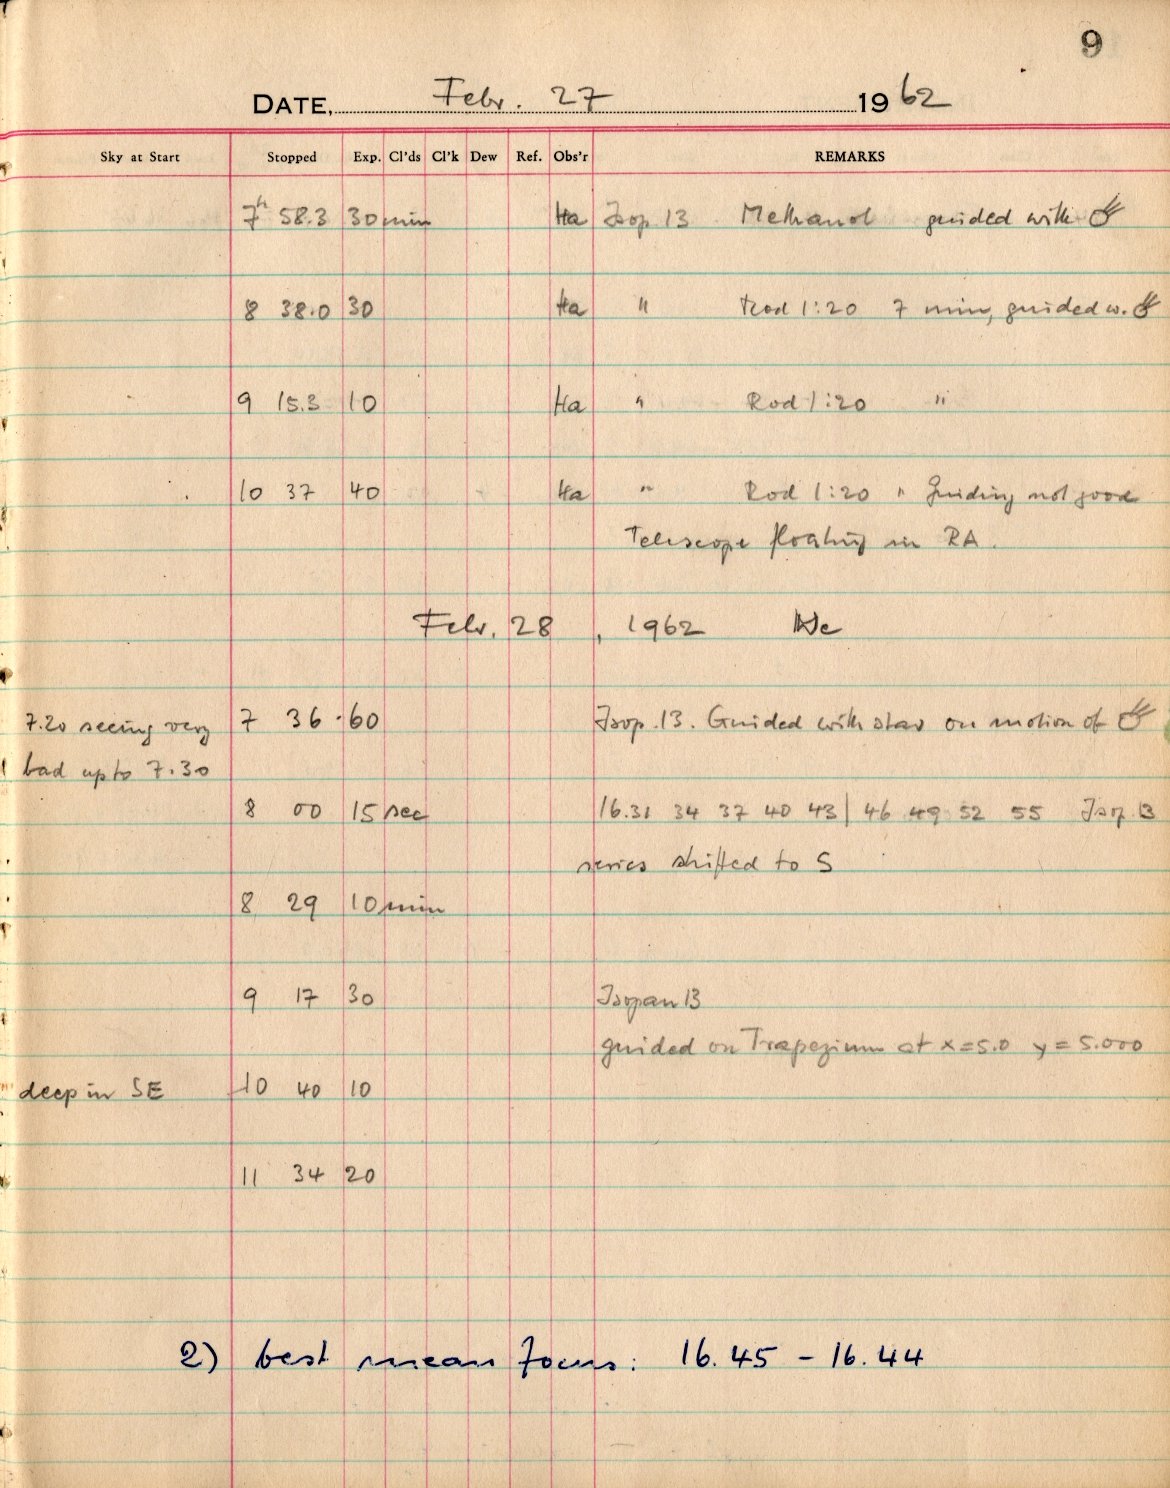 9
DATE, Febr. 27 1962
Sky at Start Stopped Exp. Cl'ds Cl'k Dew Ref. Obs'r REMARKS
7h 58.3 30 min Ha Isop. 13 Methanol guided with ☄
8 38.0 30 Ha " Rod 1:20 7 min, guided w. ☄
9 15.3 10 Ha " Rod 1:20 "
10 37 40 Ha " Rod 1:20 " Guiding not good
Telescope floating in RA.
Febr. 28, 1962 We
7.20 seeing very 7 36 60 Isop. 13. Guided with star on motion of ☄
bad up to 7.30
8 00 15 sec 16.31 34 37 40 43 | 46 49 52 55 Isop. 13
series shifted to S
8 29 10 min
9 17 30 Isopan 13
guided on Trapezium at x=5.0 y=5.000
deep in SE 10 40 10
11 34 20
2) best mean focus: 16.45 - 16.44